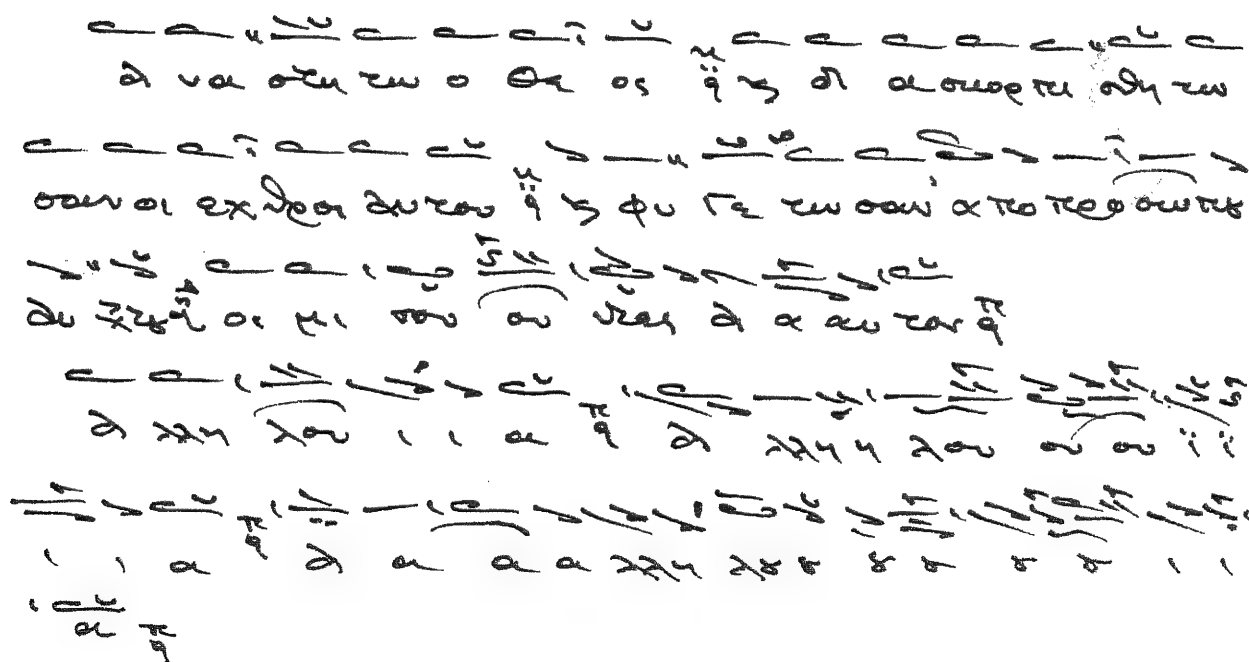 α να στη τω ο Θε ος ϗ δι α σκορπι σθη τω
σαν οι εχ θροι αυ του ϗ φυ γε τω σαν α πο προ σω που
αυ του οι μι σου ου ντες α α αυ τον
α λλη λου ι ι α α λλη η λου ου ου ϊ ϊ
ι ι α α α α α λλη λȣ ȣ ȣ ȣ ȣ ȣ ι ι
α